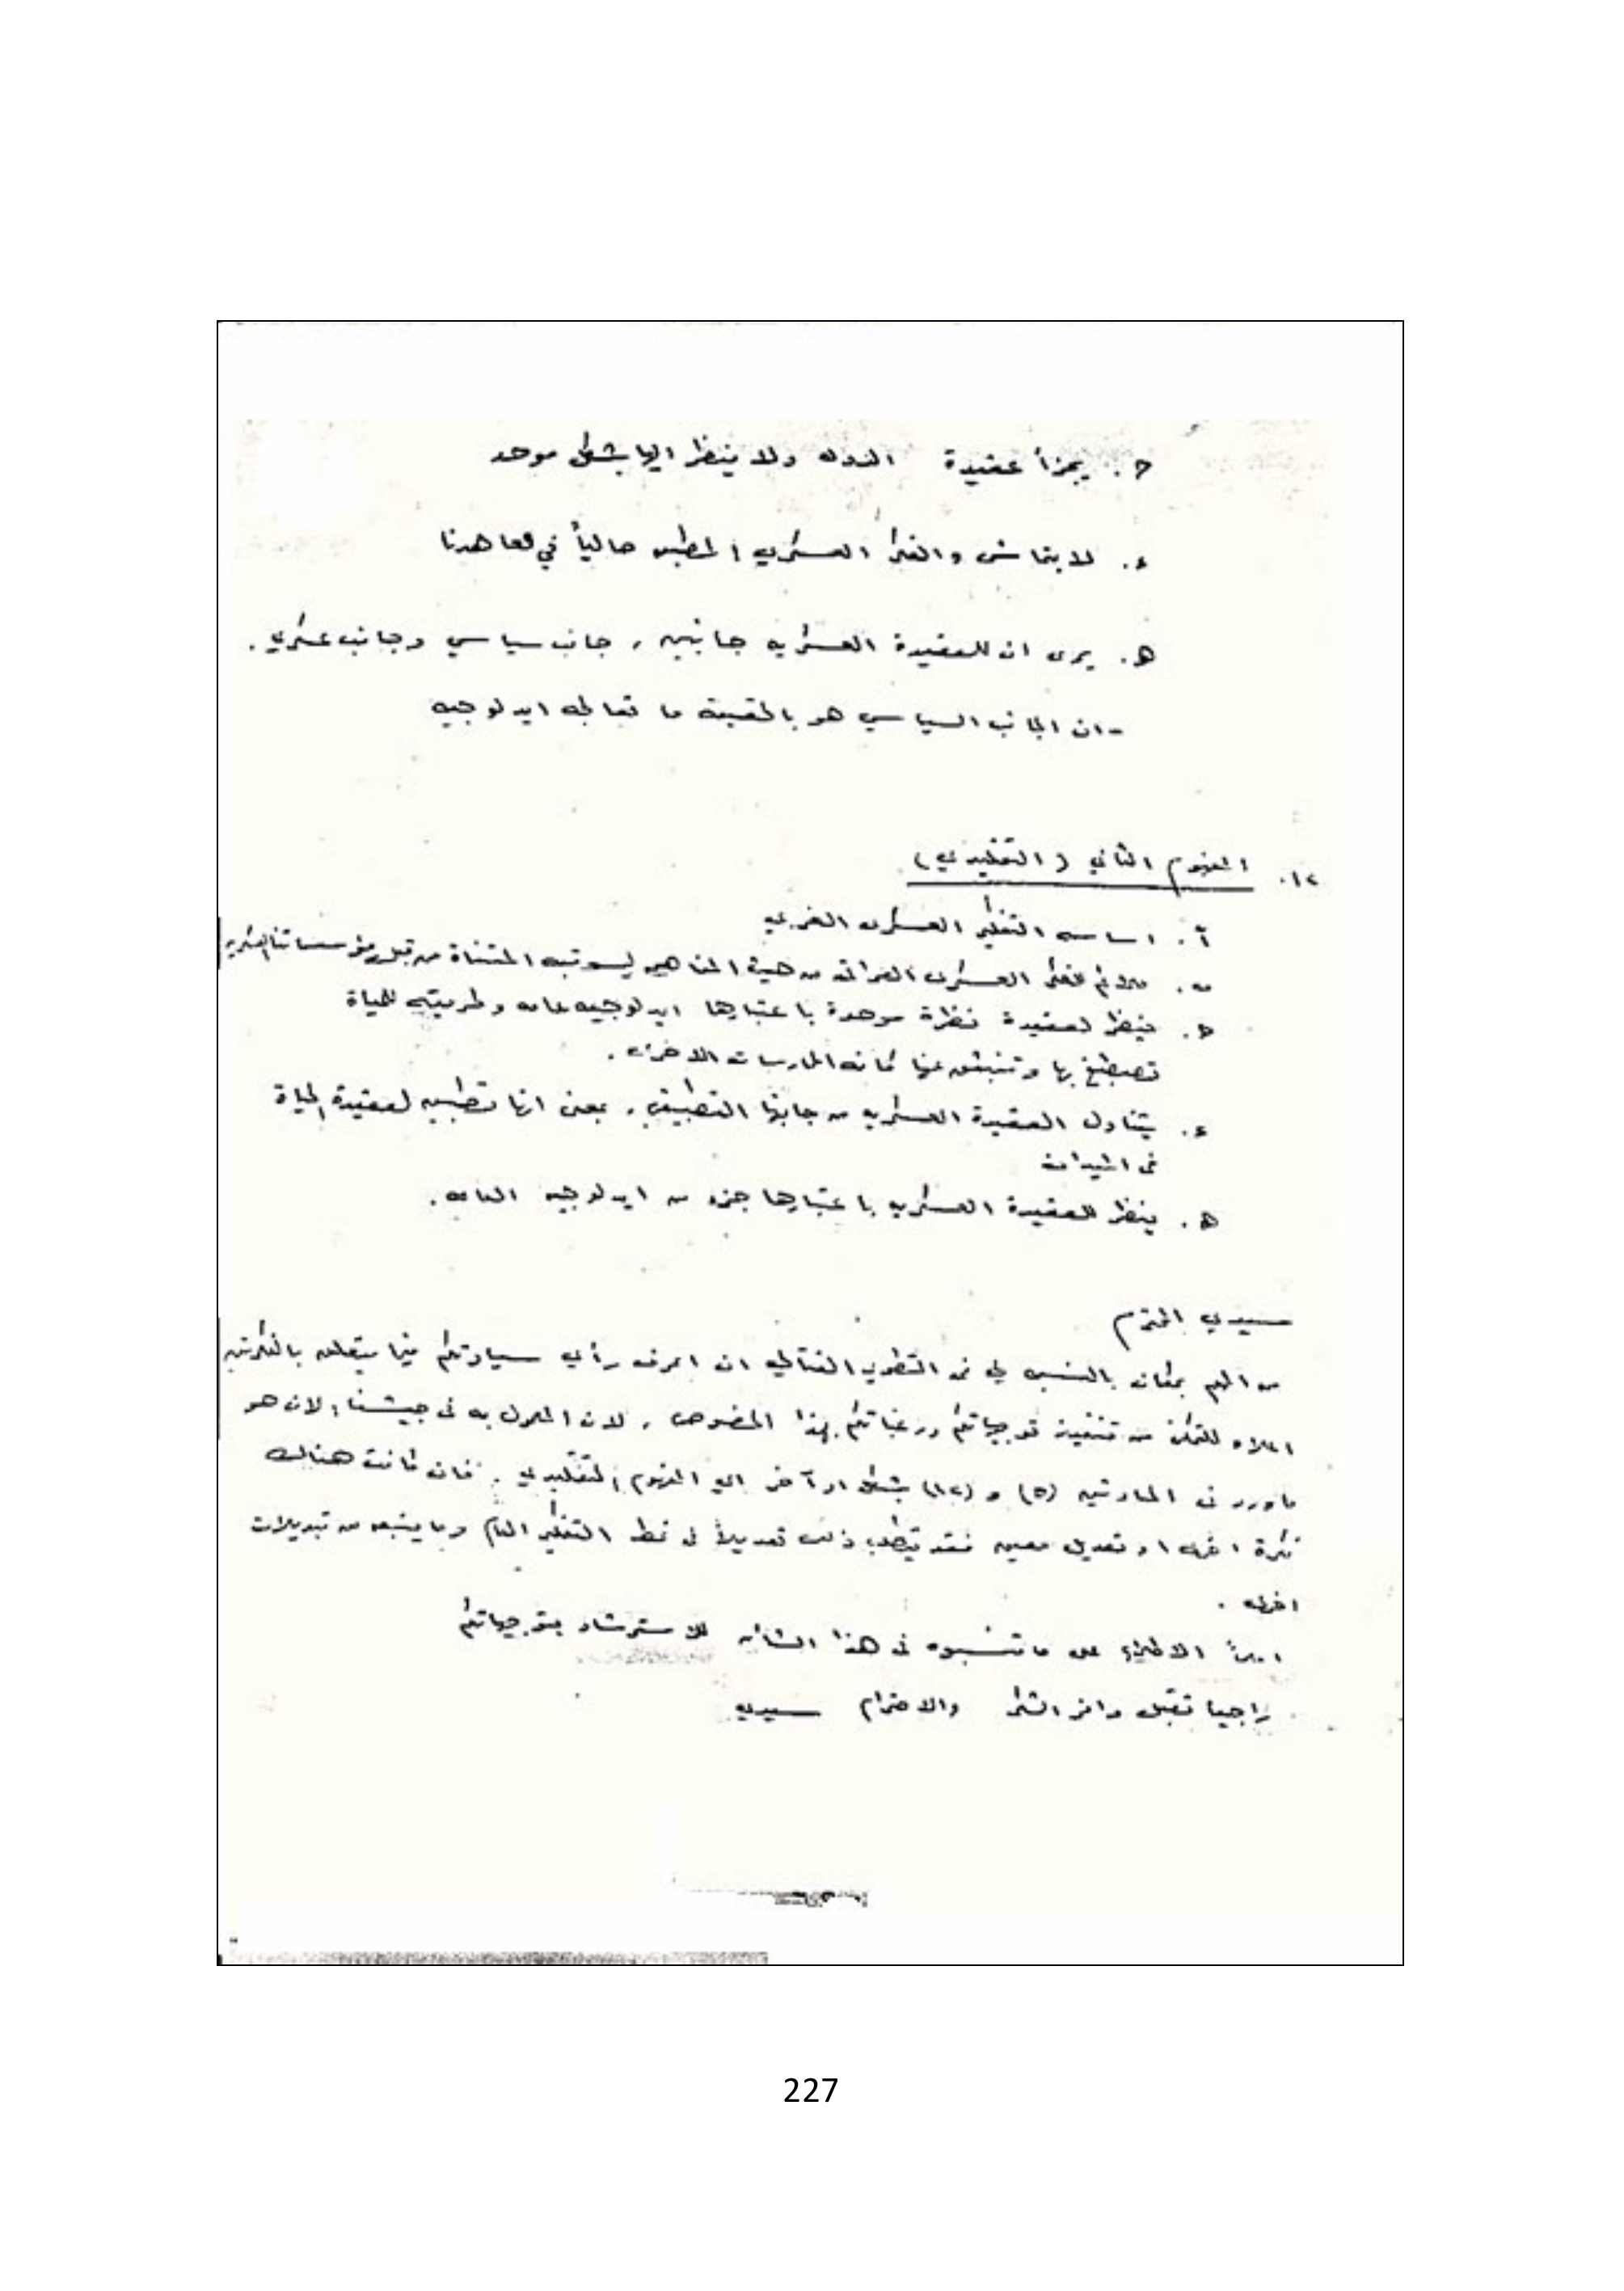 ج. يجزأ عقيدة الدولة ولا ينظر اليها بشكل موحد
د. لا يتماشى والفكر العسكري المطبق حالياً في معاهدنا
هـ. يرى ان للعقيدة العسكرية جانبين، جانب سياسي وجانب عسكري.
- ان الجانب السياسي هو بالحقيقة ما تعالجه ايدلوجيه
١٢. المفهوم الثاني (التقليدي)
أ. اساسه التفكير العسكري الغربي
ب. ملائم للفكر العسكري العراقي من حيث المفاهيم السوقيه المتبناة من قبل مؤسساتنا العسكريه
ج. ينظر لعقيدة نظرة موحدة باعتبارها ايدلوجيه عامه وطريقة للحياة
تصطبغ بها وتنبثق عنها كافة الممارسات الاخرى.
د. يتناول العقيدة العسكريه من جانبها التطبيقي، بمعنى انها تطبيق لعقيدة الحياة
في الميدان
هـ. ينظر للعقيدة العسكريه باعتبارها جزء من ايدلوجيه العامه.
سيدي المحترم
من المهم بمكان بالنسبه لي في التطوير القتالي ان اعرف رأي سيادتكم فيما يتعلق بالفكرتين
اعلاه للتمكن من تنفيذ توجيهاتكم ورغباتكم بهذا الخصوص، لان المعمول به في جيشنا الان هو
ماورد في المادتين (٥) و (١٢) بشكل او آخر اي المفهوم التقليدي. فان كانت هناك
فكرة اخرى او تعديل معين فقد يتطلب ذلك تعديلاً في نمط التفكير العام وما يتبعه من تبديلات
اخرى.
الاطلاع على ما تنسبوه في هذا الشأن للاسترشاد بتوجيهاتكم
راجيا تقبل وافر الشكر والاحترام سيدي
227